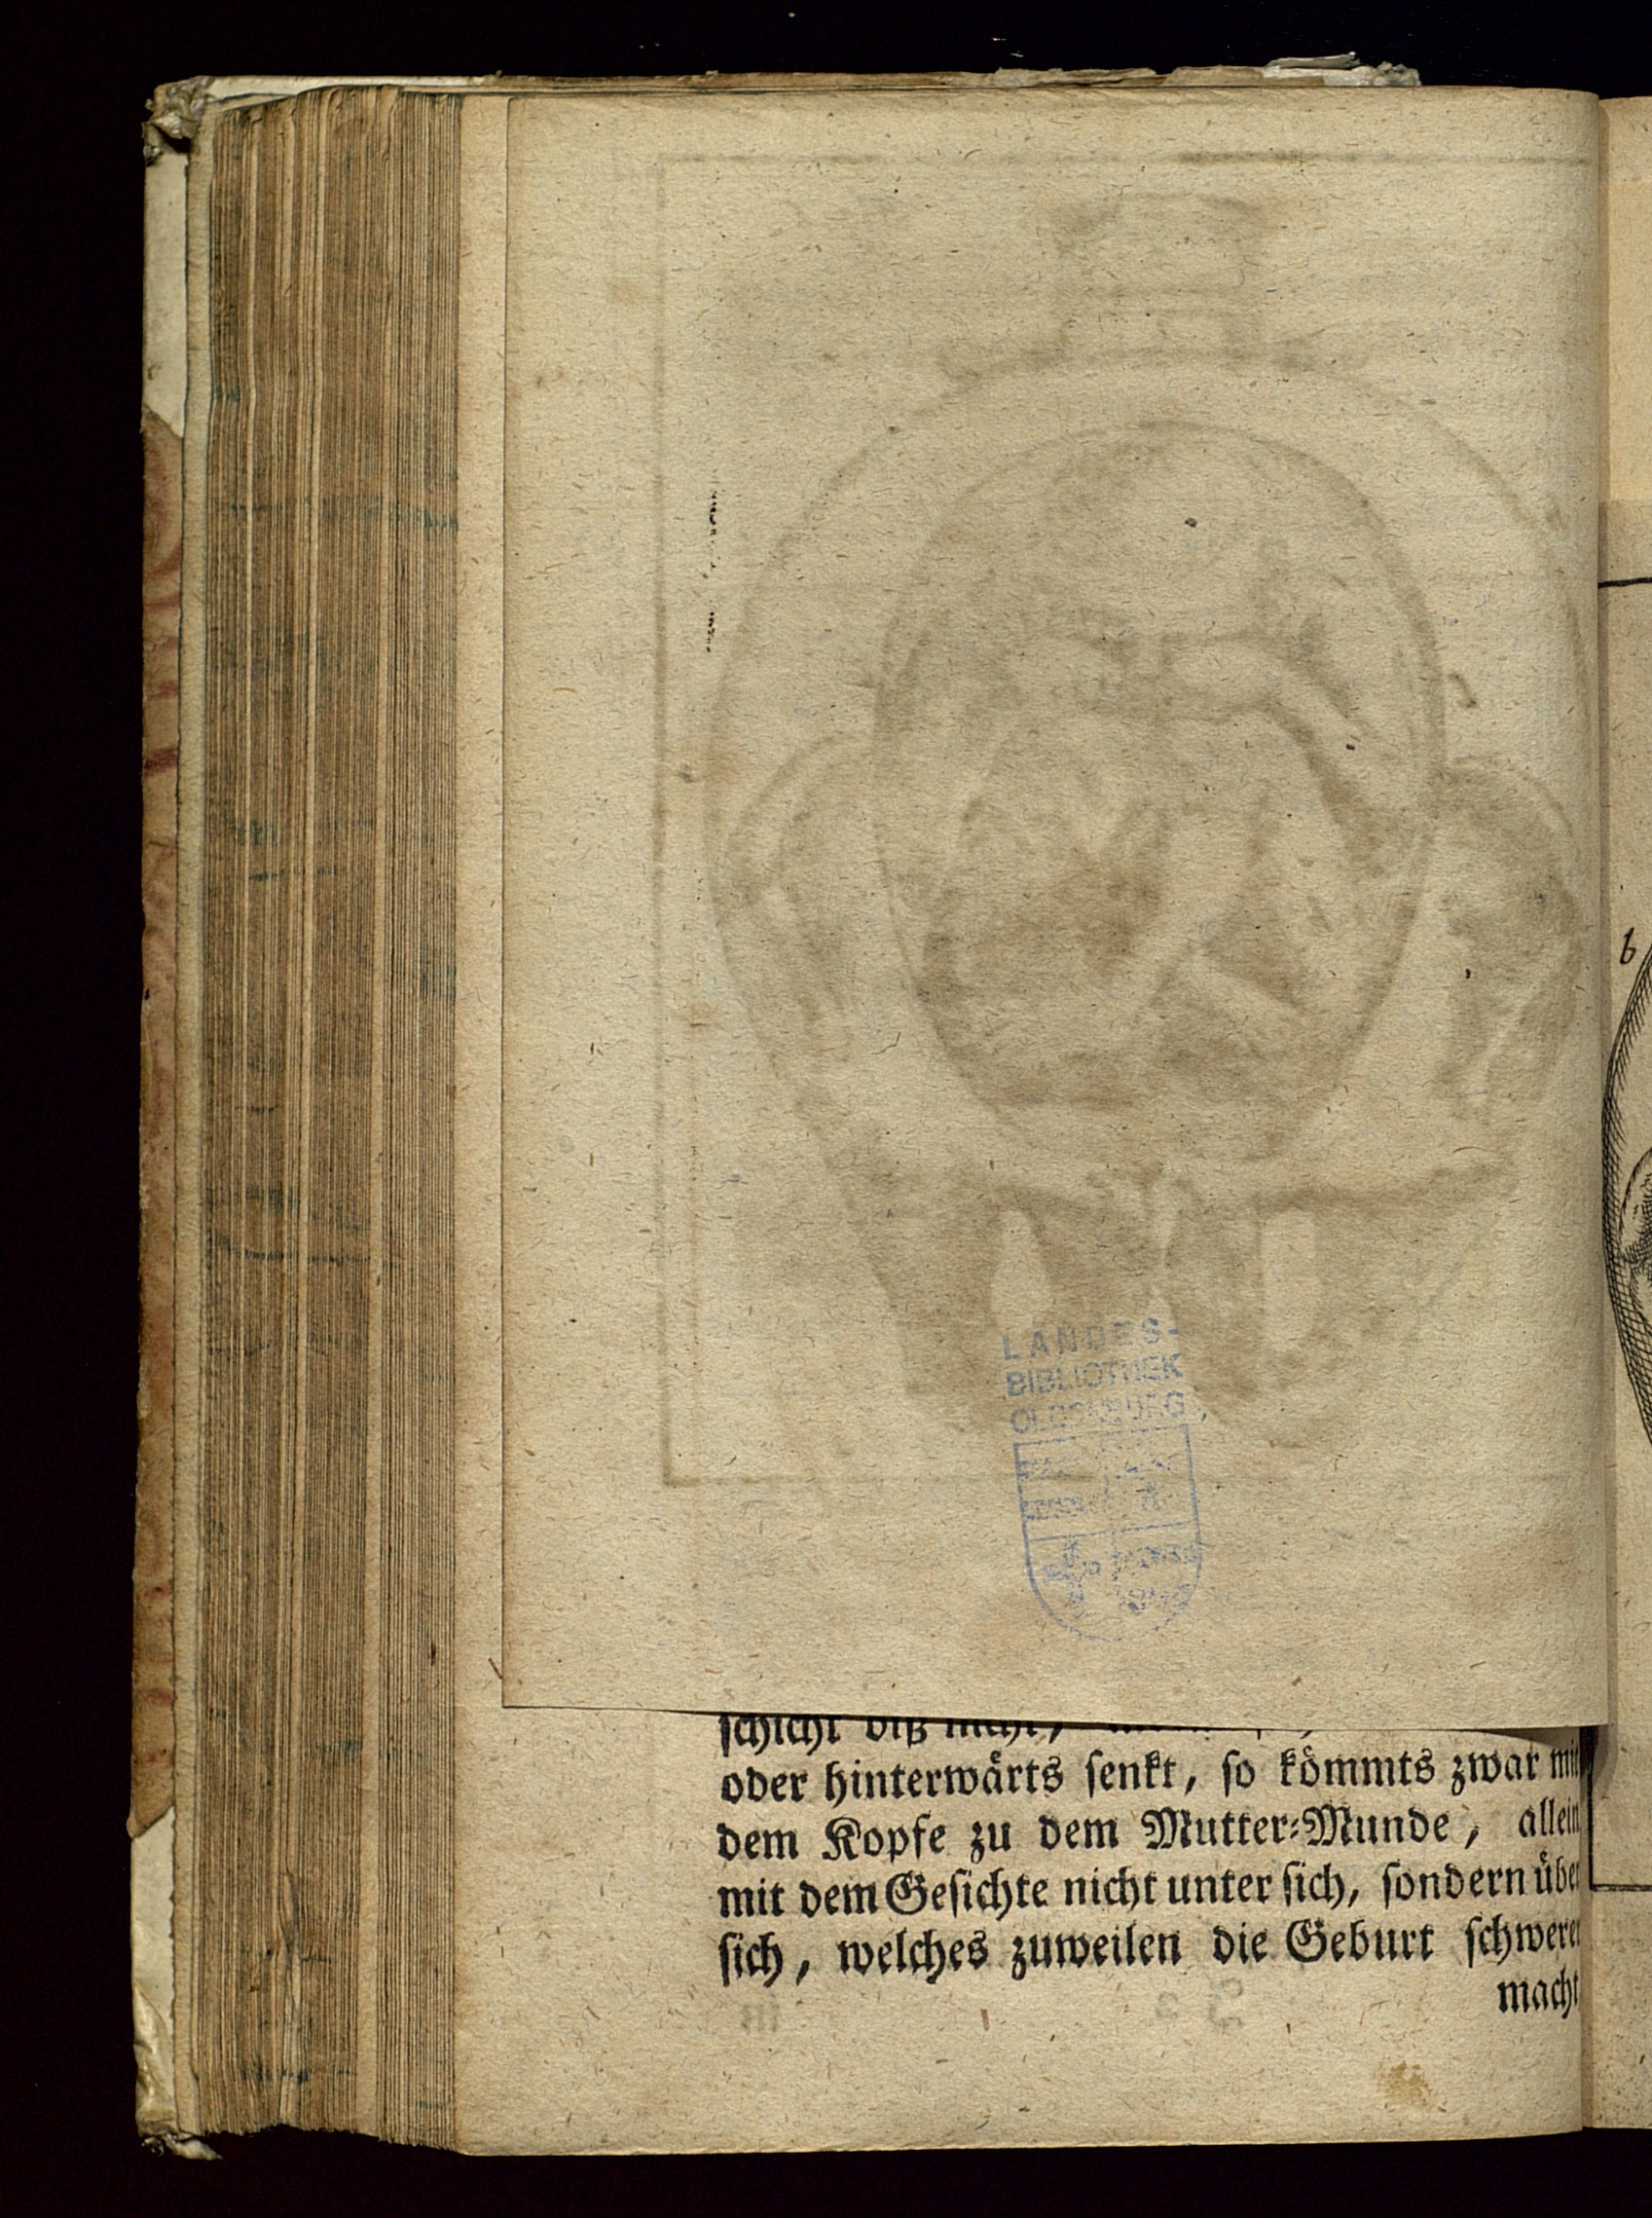 LANDES-
BIBLIOTHEK
OLDENBURG
b
schicht diß nicht,
oder hinterwärts senkt, so kömmts zwar mit
dem Kopfe zu dem Mutter-Munde, allein
mit dem Gesichte nicht unter sich, sondern über
sich, welches zuweilen die Geburt schwerer
macht